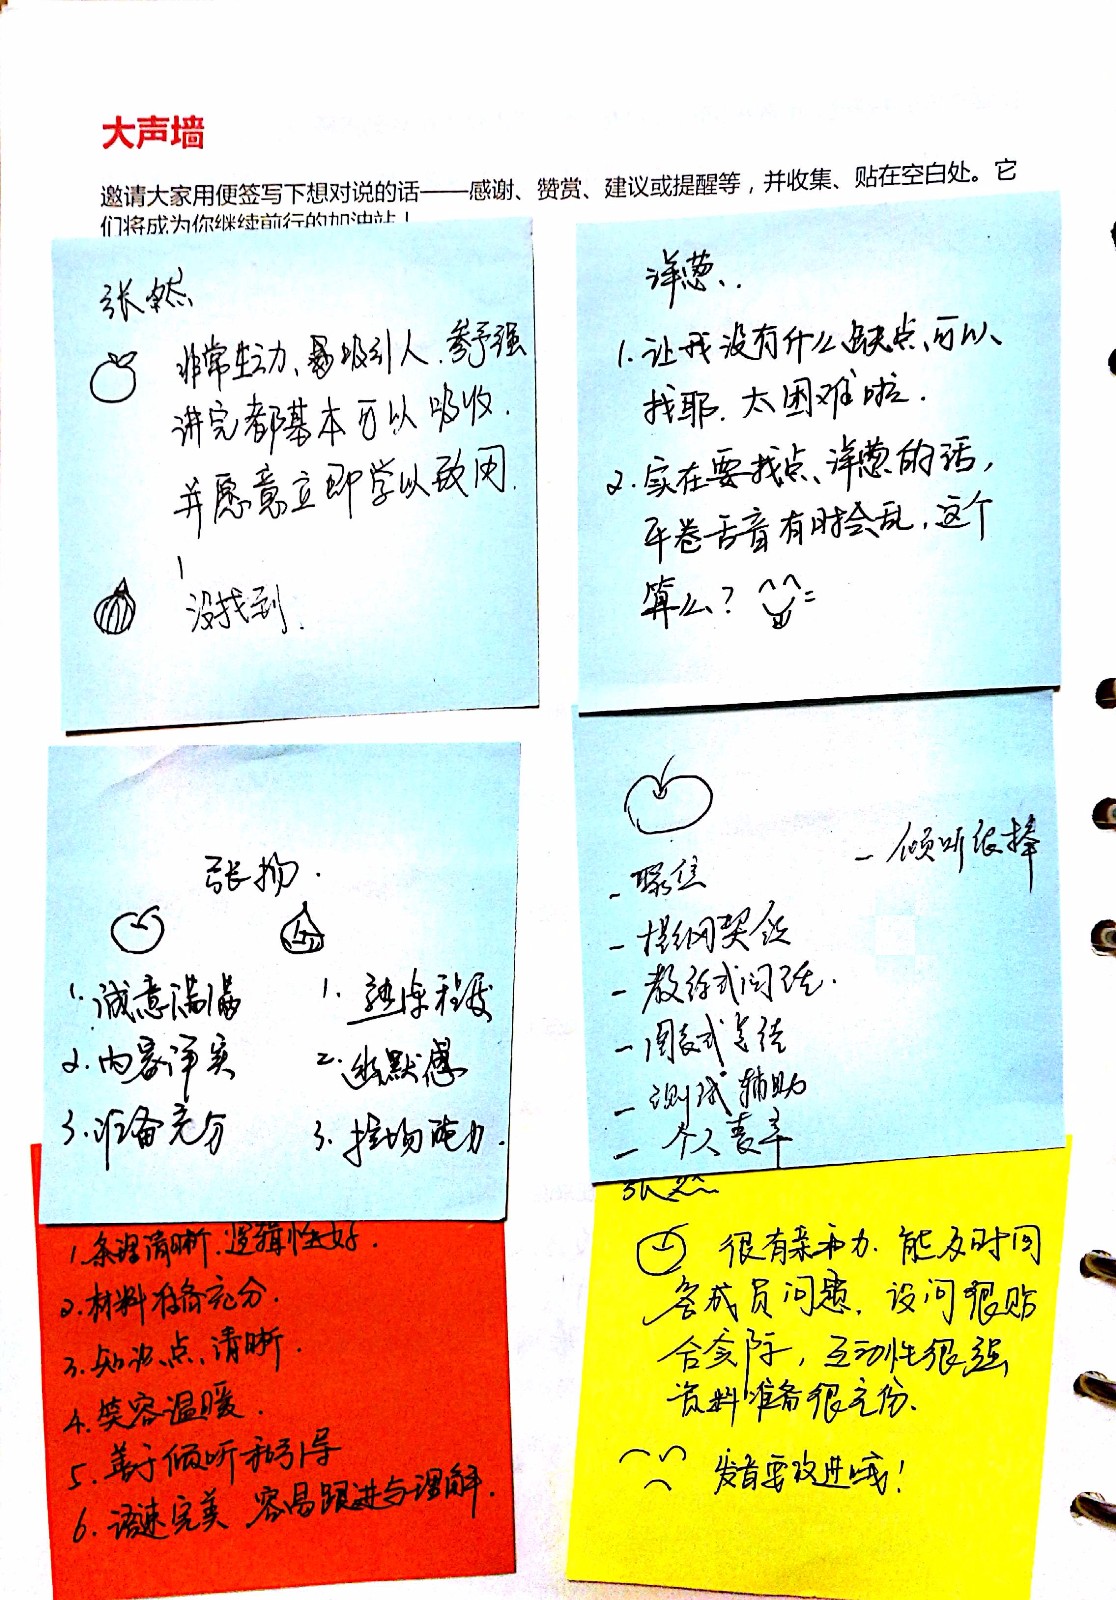 大声墙
邀请大家用便签写下想对说的话——感谢、赞赏、建议或提醒等，并收集、贴在空白处。它
们将成为你继续前行的加油站！
张然
非常生动、吸引人.参予强
讲完都基本可以吸收.
并愿意立即学以致用.
没找到.
洋葱..
1.让我没有什么缺点、可以、
找耶.太困难啦.
2.实在要找点、洋葱的话，
平卷舌音有时会乱，这个
算么？
张扬.
1.诚意满满
2.内容详实
3.准备充分
1.熟练程度
2.幽默感
3.控场能力.
- 聚焦
- 提纲挈领
- 教练式问话.
- 图表式总结
- 测试辅助
- 个人表率
- 倾听很棒
1.条理清晰.逻辑性好.
2.材料准备充分.
3.知识点、清晰.
4.笑容温暖.
5.善于倾听和引导
6.语速完美 容易跟进与理解.
张然
很有亲和力.能及时回
答成员问题.设问很贴
合实际，互动性很强
资料准备很充份.
发音要改进哦！